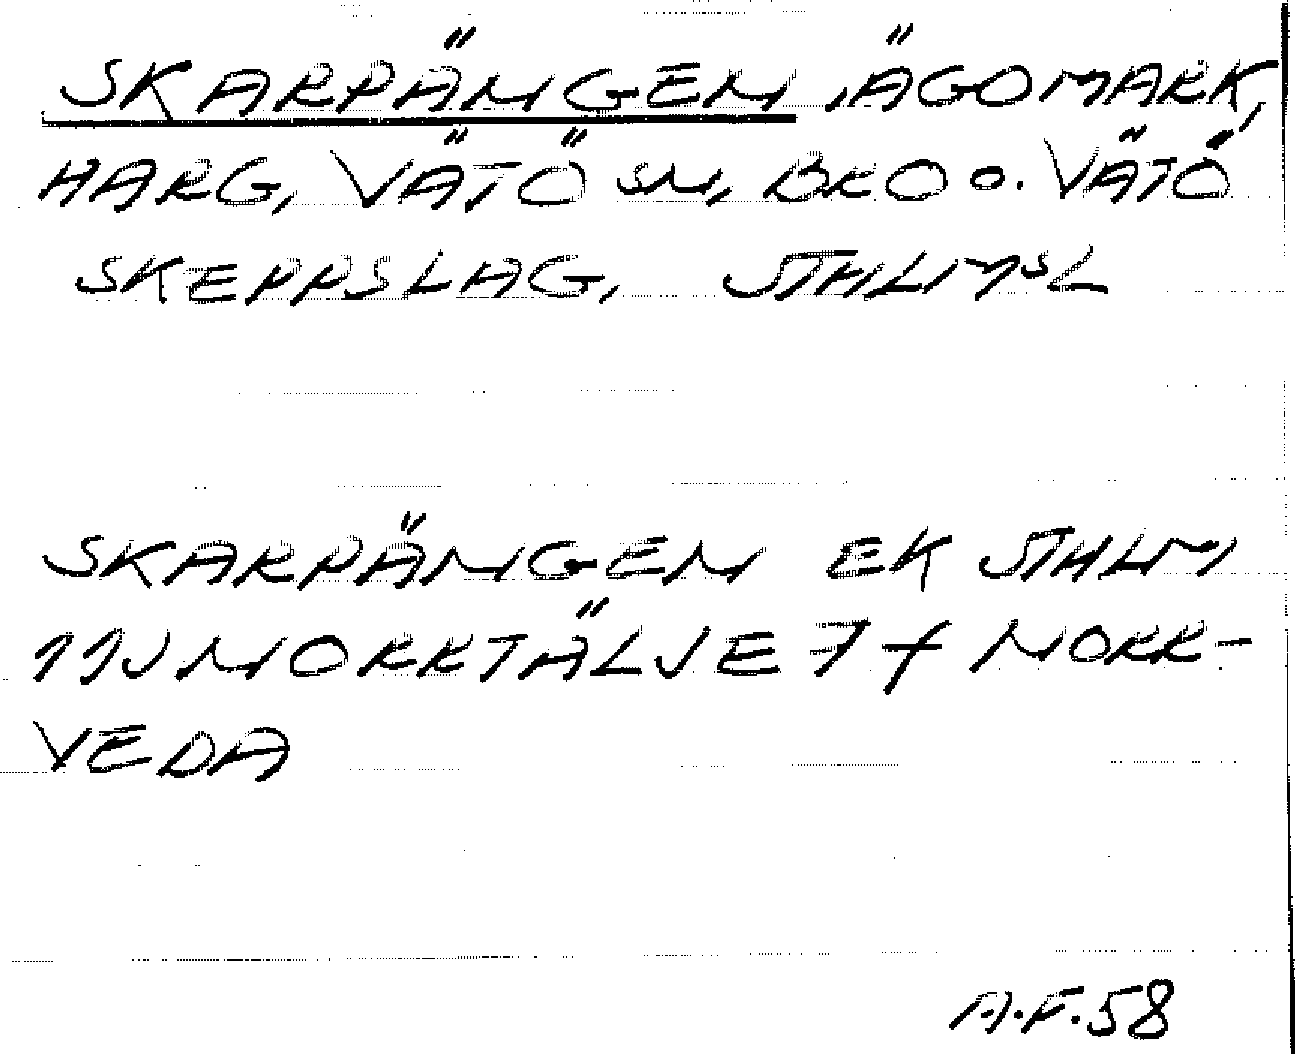 SKARPÄNGEN, ÄGOMARK,
HARG, VÄTÖ SN, BRO O. VÄTÖ
SKEPPSLAG, STHLMSL
SKARPÄNGEN EK STHLM
11J NORRTÄLJE 7 f NORR-
VEDA
A.F.58